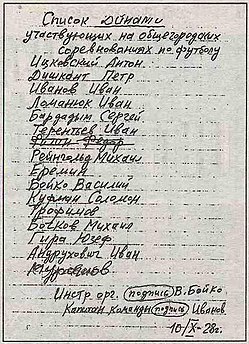 Список Дiнамi
участвующих на общегородских
соревнованиях по футболу
Ицковский Антон.
Дишкант Петр
Иванов Иван
Ломанюк Иван
Бардадым Сергей
Терентьев Иван
Филин Федор
Рейнгольд Михаил
Еремин
Бойко Василий
Курман Соломон
Трофимов
Бочков Михаил
Гира Юзеф
Андрухович Иван
Инстр орг. (подпись) В. Бойко
Капитан команды (подпись) Иванов
10/X-28г.